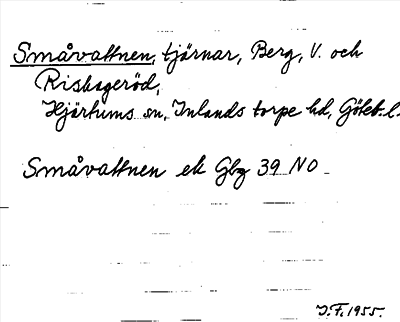 Småvattnen, tjärnar, Berg, V. och
Rishageröd,
Hjärtums sn, Inlands torpe hd, Göteb. l.
Småvattnen ek Gbg 39 NO
J.F. 1955.